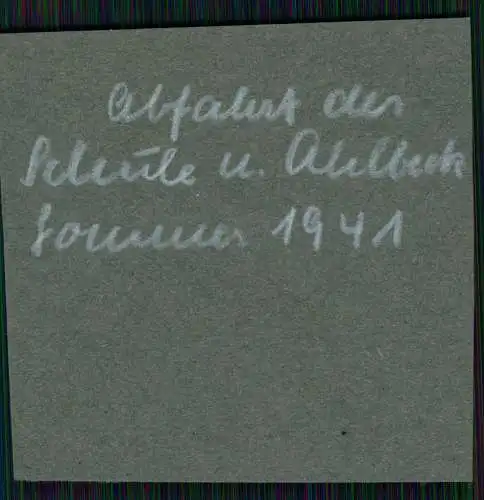 Abfahrt der
Schule n. Ahlbeck
Sommer 1941